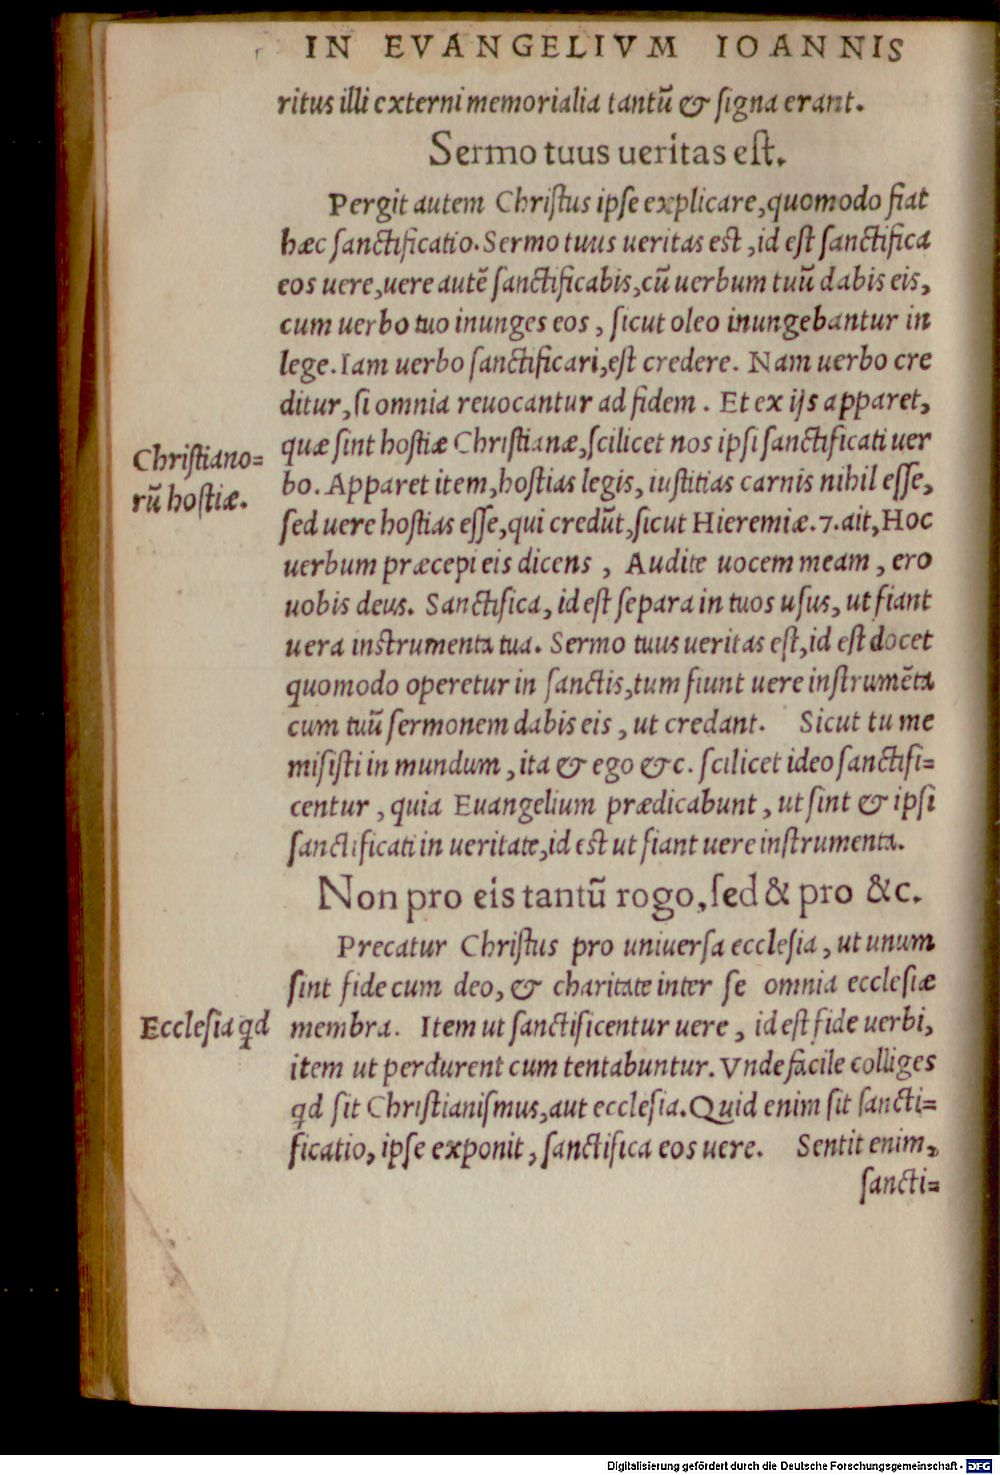 IN EVANGELIVM IOANNIS
ritus illi externi memorialia tantũ & ſigna erant.
Sermo tuus ueritas eſt.
Pergit autem Chriſtus ipſe explicare, quomodo fiat
hæc ſanctificatio. Sermo tuus ueritas est, id eſt ſanctifica
eos uere, uere autẽ ſanctificabis, cũ uerbum tuũ dabis eis,
cum uerbo tuo inunges eos, ſicut oleo inungebantur in
lege. Iam uerbo ſanctificari, eſt credere. Nam uerbo cre
ditur, ſi omnia reuocantur ad fidem. Et ex ijs apparet,
quæ ſint hoſtiæ Chriſtianæ, ſcilicet nos ipſi ſanctificati uer
Chriſtiano=
rũ hoſtiæ.
bo. Apparet item, hoſtias legis, iuſtitias carnis nihil eſſe,
ſed uere hoſtias eſſe, qui credũt, ſicut Hieremiæ. 7. ait, Hoc
uerbum præcepi eis dicens, Audite uocem meam, ero
uobis deus. Sanctifica, id eſt ſepara in tuos uſus, ut fiant
uera instrumenta tua. Sermo tuus ueritas eſt, id eſt docet
quomodo operetur in ſanctis, tum fiunt uere inſtrumẽta
cum tuũ ſermonem dabis eis, ut credant. Sicut tu me
miſiſti in mundum, ita & ego &c. ſcilicet ideo ſanctifi=
centur, quia Euangelium prædicabunt, ut ſint & ipſi
ſanctificati in ueritate, id est ut fiant uere inſtrumenta.
Non pro eis tantũ rogo, ſed & pro &c.
Precatur Chriſtus pro uniuerſa eccleſia, ut unum
ſint fide cum deo, & charitate inter ſe omnia eccleſiæ
Eccleſia qd
membra. Item ut ſanctificentur uere, id eſt fide uerbi,
item ut perdurent cum tentabuntur. Vnde facile colliges
qd ſit Chriſtianiſmus, aut eccleſia. Quid enim ſit ſancti=
ficatio, ipſe exponit, ſanctifica eos uere. Sentit enim,
ſancti=
Digitalisierung gefördert durch die Deutsche Forschungsgemeinschaft - DFG